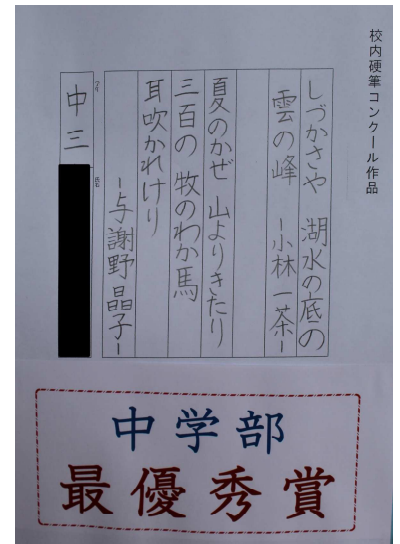 校内硬筆コンクール作品
しづかさや 湖水の底の
雲の峰 ー小林一茶ー
夏のかぜ 山よりきたり
三百の 牧のわか馬
耳吹かれけり
ー与謝野晶子ー
中三
中学部
最優秀賞